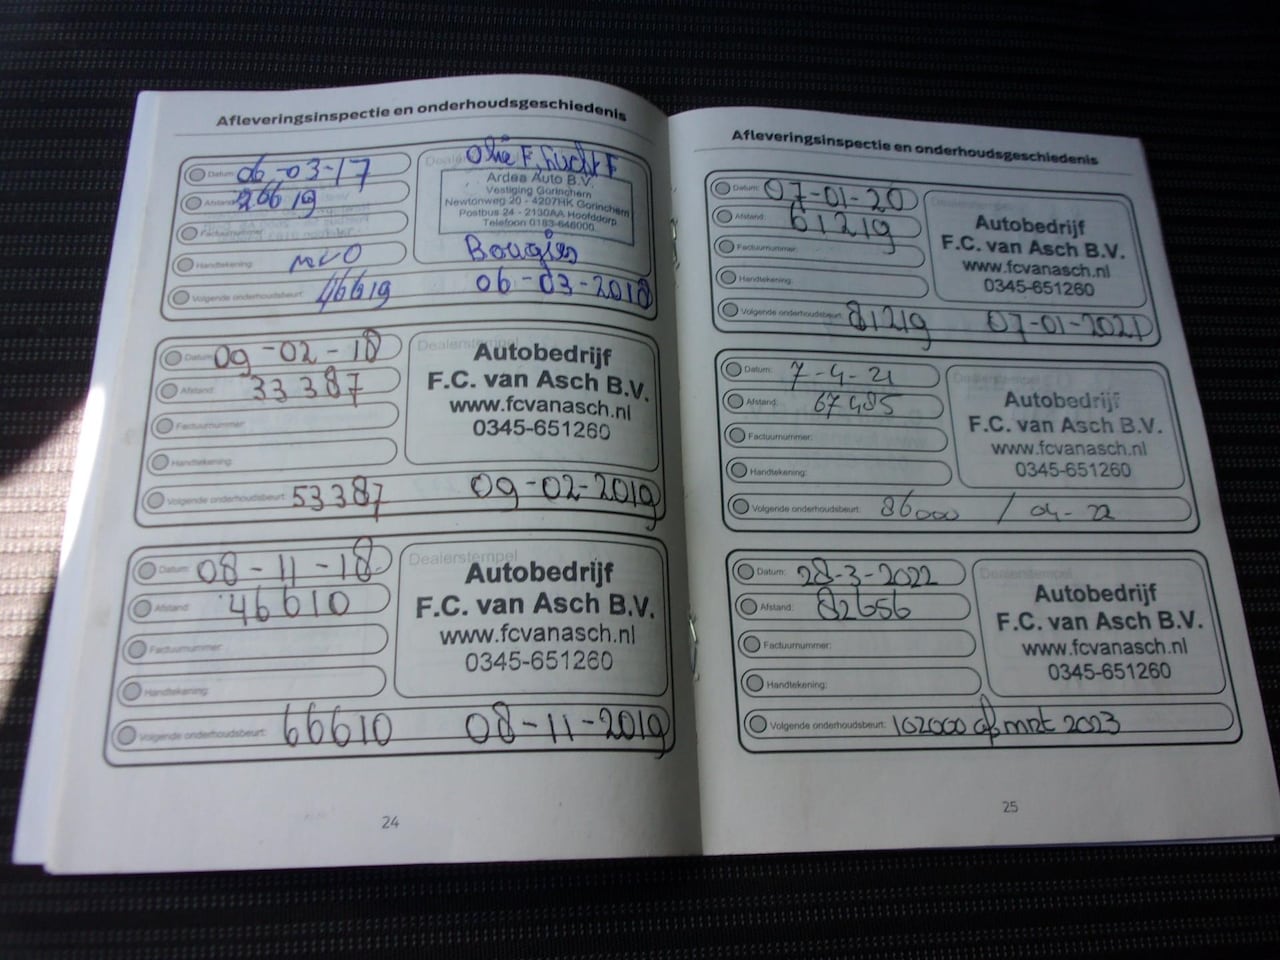 Afleveringsinspectie en onderhoudsgeschiedenis
Datum: 06-03-17
Afstand: 26619
Factuurnummer:
Handtekening:
Volgende onderhoudsbeurt: 46619 06-03-2018
Olie F, Lucht F
Ardea Auto B.V.
Vestiging Gorinchem
Newtonweg 20 - 4207HK Gorinchem
Postbus 24 - 2130AA Hoofddorp
Telefoon 0183-646000
Bougies
Datum: 09-02-18
Afstand: 33387
Factuurnummer:
Handtekening:
Volgende onderhoudsbeurt: 53387 09-02-2019
Dealerstempel
Autobedrijf
F.C. van Asch B.V.
www.fcvanasch.nl
0345-651260
Datum: 08-11-18
Afstand: 46610
Factuurnummer:
Handtekening:
Volgende onderhoudsbeurt: 66610 08-11-2019
Dealerstempel
Autobedrijf
F.C. van Asch B.V.
www.fcvanasch.nl
0345-651260
24
Afleveringsinspectie en onderhoudsgeschiedenis
Datum: 07-01-20
Afstand: 61219
Factuurnummer:
Handtekening:
Volgende onderhoudsbeurt: 81219 07-01-2021
Dealerstempel
Autobedrijf
F.C. van Asch B.V.
www.fcvanasch.nl
0345-651260
Datum: 7-4-21
Afstand: 67485
Factuurnummer:
Handtekening:
Volgende onderhoudsbeurt: 86000 / 04-22
Dealerstempel
Autobedrijf
F.C. van Asch B.V.
www.fcvanasch.nl
0345-651260
Datum: 28-3-2022
Afstand: 82656
Factuurnummer:
Handtekening:
Volgende onderhoudsbeurt: 102000 of mrt 2023
Dealerstempel
Autobedrijf
F.C. van Asch B.V.
www.fcvanasch.nl
0345-651260
25